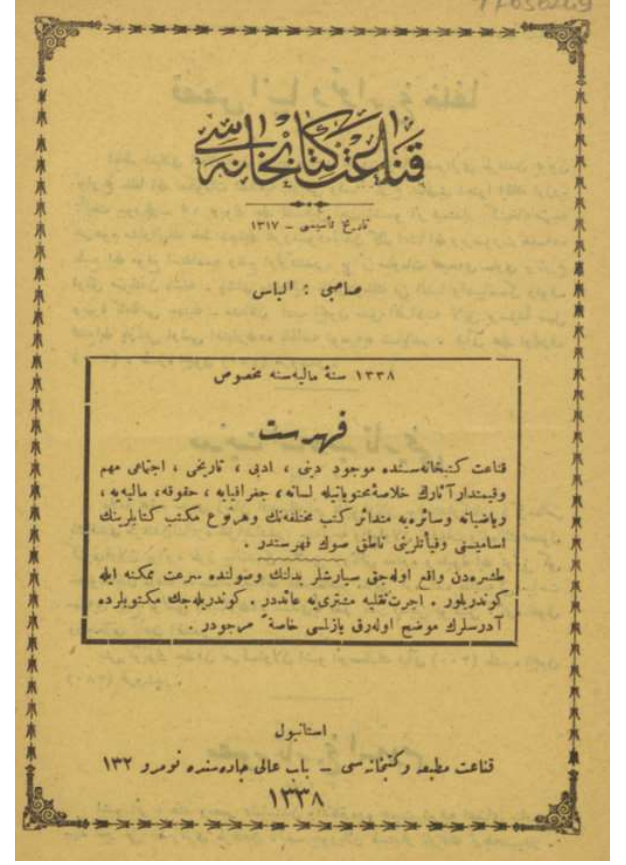 قناعت كتابخانه‌سی
تاریخ تأسیسی – ١٣١٧
صاحبی : الیاس
١٣٣٨ سنهٔ مالیه‌سنه مخصوص
فهرست
قناعت كتبخانه‌سنده موجود دینی ، ادبی ، تاریخی ، اجتماعی مهم
وقیمتدار آثارك خلاصهٔ محتویاتیله لسانه ، جغرافیایه ، حقوقه ، مالیه‌یه ،
ریاضیاته وسائره‌یه متدائر كتب مختلفه‌نك وهرنوع مكتب كتابلرینك
اسامیسنی وفیأتلرینی ناطق صوك فهرستدر .
طشره‌دن واقع اوله‌جق سپارشلر بدلنك وصولنده سرعت ممكنه ایله
كوندریلور . اجرت نقلیه مشتری‌یه عائددر . كوندریله‌جك مكتوبلرده
آدرسلرك موضح اوله‌رق یازلمسی خاصةً مرجودر .
استانبول
قناعت مطبعه وكتبخانه‌سی – باب عالی جاده‌سنده نومرو ١٣٢
١٣٣٨